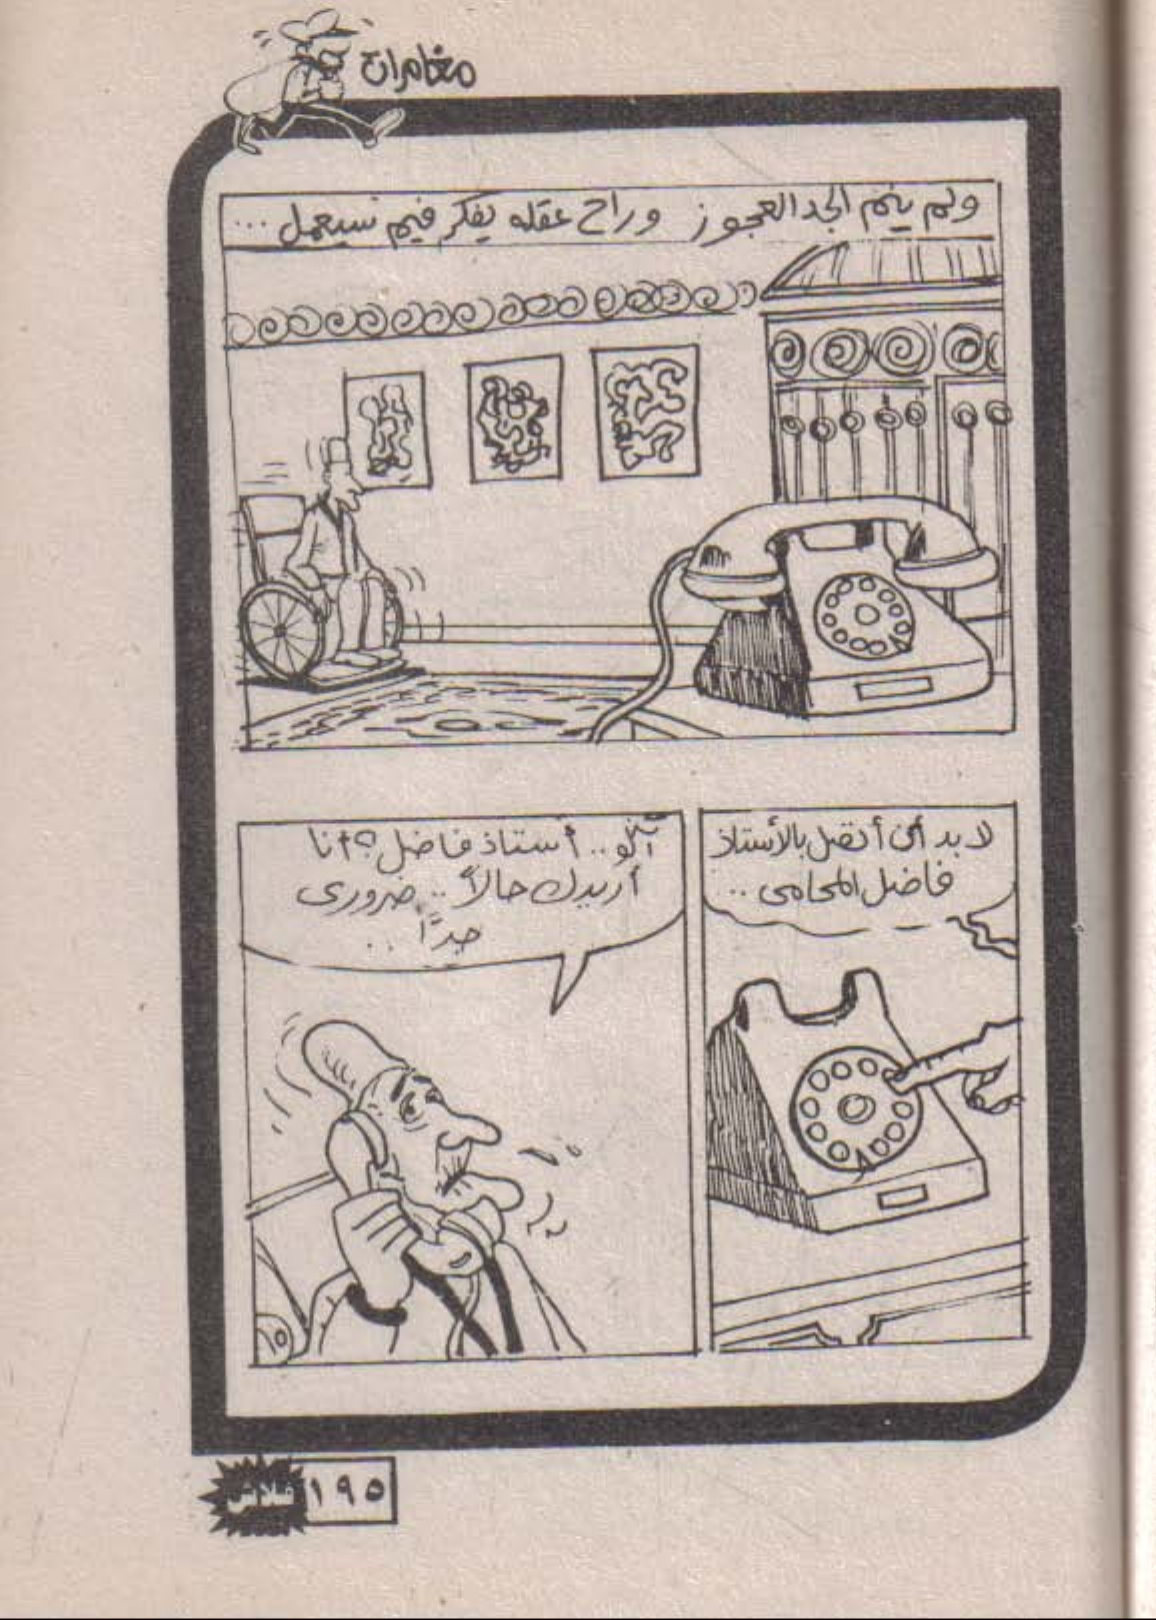 مغامرات
ولم ينم الجد العجوز وراح عقله يفكر فيم سيعمل ...
لا بد أن أتصل بالأستاذ
فاضل المحامى ..
آلو .. أستاذ فاضل ؟ أنا
أريدك حالاً .. ضرورى
جدًا ..
فلاش
١٩٥